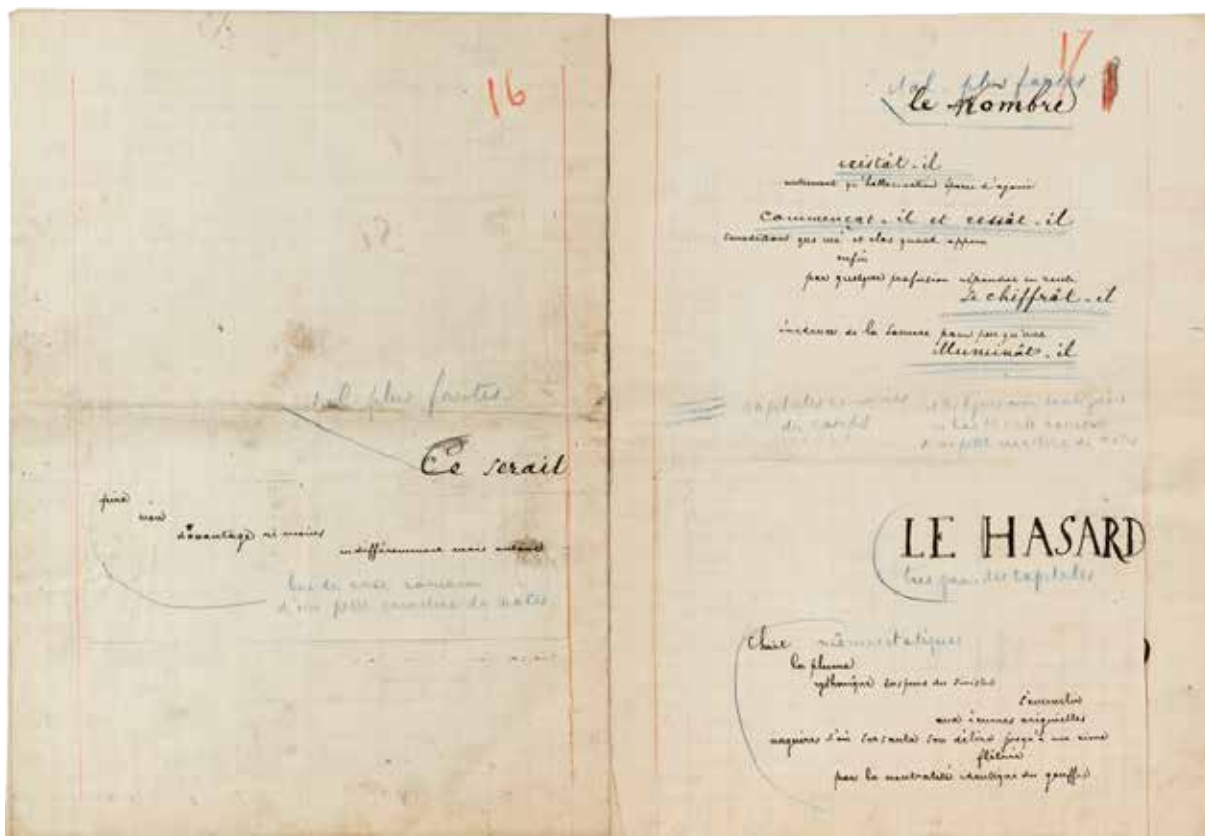 16
ital. plus fortes
Ce serait
pire
non
davantage ni moins
indifféremment mais autant
bas de case romain
d'un petit caractère de notes
17
ital. plus fortes
le Nombre
existât-il
autrement qu'hallucination éparse d'agonie
commençât-il et cessât-il
sourdant que nié et clos quand apparu
enfin
par quelque profusion répandue en rareté
Se chiffrât-il
évidence de la somme pour peu qu'une
illuminât-il
capitales romaines
du
en bas de case romain
d'un petit caractère de notes
LE HASARD
très grandes capitales
Choit mêmes italiques
la plume
rythmique suspens du sinistre
s'ensevelir
aux écumes originelles
naguères d'où sursauta son délire jusqu'à une cime
flétrie
par la neutralité identique du gouffre